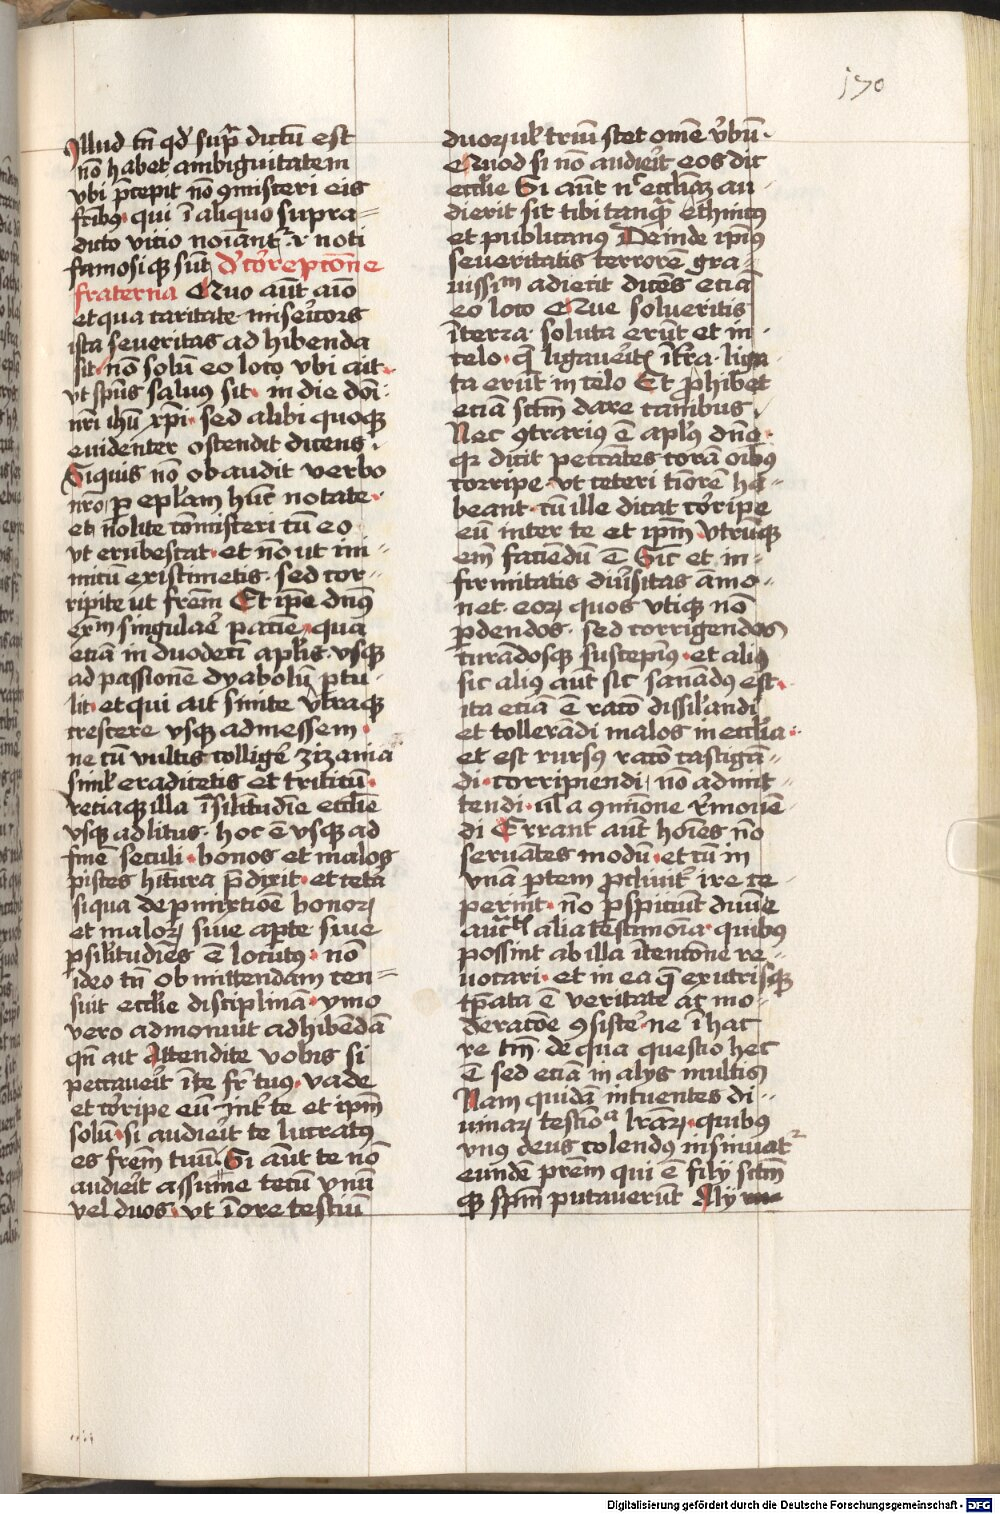 170
Illud tn̄ qd̓ sup̄ dictū est
nō habet ambiguitatem
vbi p̄cepit nō ꝯmisceri eis
fribꝰ qui ī aliquo supra⸗
dicto vitio noiant᷑ ⁊ noti
famosiqꝫ sūt d̓ cor̓repcōne
fraterna Quo aūt aīo
et qua caritate miser̓icors
ista seueritas adhibenda
sit nō solū eo loco vbi ait
vt spūs saluꝰ sit in die dōi
nr̄i ihū xp̄i sed alibi quoqꝫ
euidenter ostendit dicens
Siquis nō obaudit verbo
nr̄o ꝑ ep̄lam hūc notate
et nolite cōmisceri cū eo
vt erubescat et nō ut ini⸗
micū existimetis sed cor⸗
ripite ut frēm Et ip̄e dnꝰ
exm̄ singular̓ pacīe qua
eciā in duodecī apl̓is vsqꝫ
ad passionē dyabolū ꝑtu⸗
lit et qui ait sinite vtraqꝫ
crescere vsqꝫ ad messem
ne cū vultis collige᷑ zizania
simł eradicetis et triticū
reciaqꝫ illa ī silitudīe ecclīe
vsqꝫ ad litus hoc ē vsqꝫ ad
finē seculi bonos et malos
pisces hītura p̄dixit et cetā
siqua de ꝑmixtioē bonoꝝ
et maloꝝ siue aꝑte siue
ꝑ silitudīes ē locutꝰ nō
ideo tn̄ obmittendam cen⸗
suit ecclīe disciplinā ymo
vero admonuit adhibendā
qn̄ ait Attendite vobis si
peccauer̓it īte fr̄ tuꝰ vade
et cor̓ripe eū int̓ te et ip̄m
solū si audier̓it te lucratꝰ
es frēm tuū Si aūt te nō
audier̓it assume tecū vnū
vel duos vt ī ore testiū
duoꝝ uł triū stet omē v̓bū
Quod si nō audier̓it eos dic
ecclīe Si aūt nͨ ecclīaꝫ au⸗
dierit sit tibi tanqꝫ ethnicꝰ
et publicanꝰ Deinde ip̄iꝰ
seueritatis terrorē gra⸗
uissim̄ adiecit dicēs eciā
eo loco Que solueritis
ī terra soluta erūt et in
celo q̄ ligauer̓itꝭ ī tr̄a liga⸗
ta erūt in celo Et ꝓhibet
eciā scm̄ dare canibus
Nec ꝯtrariꝰ ē aplꝰ dn̄o
qꝛ dicit peccātes corā oībꝰ
corripe vt ceteri tiōrē ha⸗
beant cū ille dicat cor̓ripe
eū inter te et ip̄m Vtrūqꝫ
em̄ faciēdū ē Sic et in⸗
firmitatis diu̓sitas amo⸗
net eoꝝ quos vtiqꝫ nō
ꝑdendos sed corrigendos
curādosqꝫ suscepīꝰ et aliꝰ
sic aliꝰ aūt sic sanādꝰ est
ita eciā ē racō dissil̓andi
et tollerādi malos in ecclīa
et est rursꝰ racō castigā⸗
di corripiendi nō admit⸗
tendi uł a ꝯmīone r̓mouē⸗
di Errant aūt hoīes nō
seruātes modū et cū in
vnā ꝑtem ꝓcliuit᷑ ire ce⸗
perint nō ꝑspiciūt diuīe
auct̄ł alia testimonia quibꝰ
possint ab illa ītencōne re⸗
uocari et in ea q̄ ex utrisqꝫ
tp̄ata ē veritate ac mo⸗
deracōe ꝯsiste᷑ ne ī hac
re tm̄ de qua questio hec
ē sed eciā in alijs multis
Nam quidā intuentes di⸗
uinaꝝ testioᵃ lr̄aꝝ quibꝰ
vnꝰ deus colendꝰ insinuat᷑
eundē prēm qui ē filij scm̄
qꝫ spm̄ putauerūt Alij
Digitalisierung gefördert durch die Deutsche Forschungsgemeinschaft - DFG